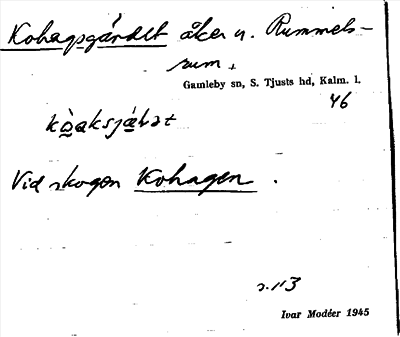 Kohagsgärdet åker n. Rummels-
rum.
Gamleby sn, S. Tjusts hd, Kalm. l.
46
Vid skogen Kohagen.
s. 113
Ivar Modéer 1945